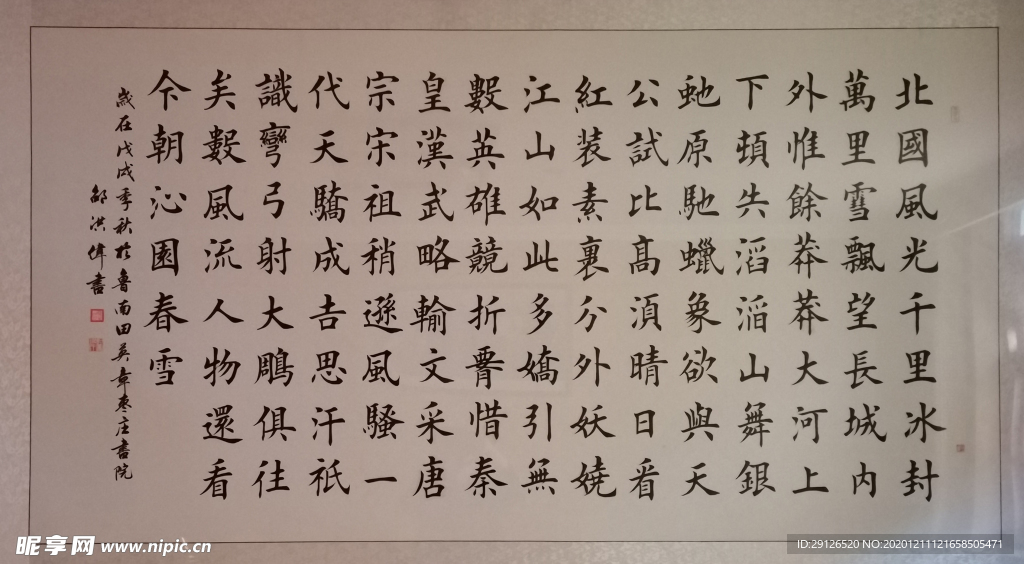 北國風光千里冰封
萬里雪飄望長城內
外惟餘莽莽大河上
下頓失滔滔山舞銀
虵原馳蠟象欲與天
公試比高須晴日看
紅裝素裹分外妖嬈
江山如此多嬌引無
數英雄競折胷惜秦
皇漢武略輸文采唐
宗宋祖稍遜風騷一
代天驕成吉思汗祇
識彎弓射大鵰俱往
矣數風流人物還看
今朝沁園春雪
歲在戊戌季秋於魯南田吴韋枣庄書院
邵洪偉書
昵享网 www.nipic.cn
ID:29126520 NO:20201211121658505471